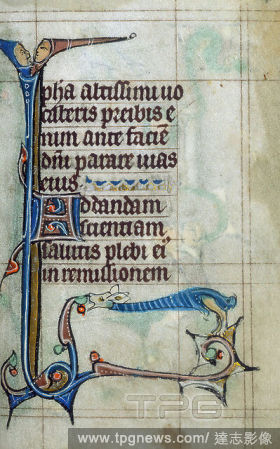 pha altissimi uo
caberis preibis e
nim ante facie͞
dñi parare uias
eius.
Ad dandam
scientiam
salutis plebi ei᾿
in remissionem
TPG
www.tpgnews.com/達志影像